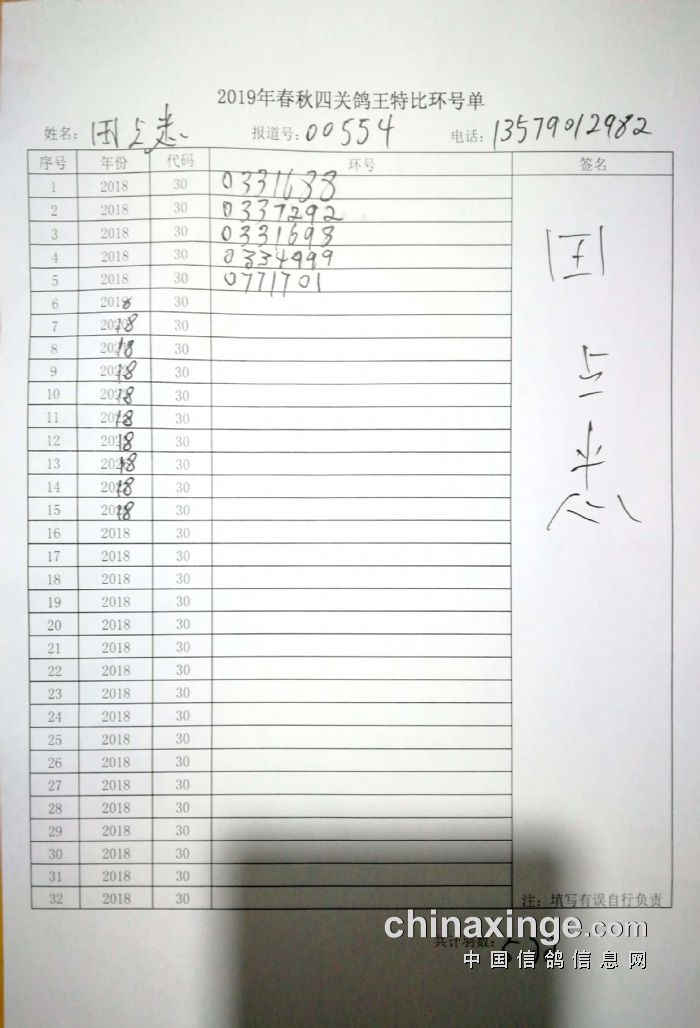 2019年春秋四关鸽王特比环号单
姓名: 报道号: 00554 电话: 13579012982
序号 年份 代码 环号 签名
1 2018 30 0331688
2 2018 30 0337292
3 2018 30 0331698
4 2018 30 0334999
5 2018 30 0771701
6 2018 30
7 2018 30
8 2018 30
9 2018 30
10 2018 30
11 2018 30
12 2018 30
13 2018 30
14 2018 30
15 2018 30
16 2018 30
17 2018 30
18 2018 30
19 2018 30
20 2018 30
21 2018 30
22 2018 30
23 2018 30
24 2018 30
25 2018 30
26 2018 30
27 2018 30
28 2018 30
29 2018 30
30 2018 30
31 2018 30
32 2018 30
注: 填写有误自行负责
共计羽数:
chinaxinge.com
中国信鸽信息网